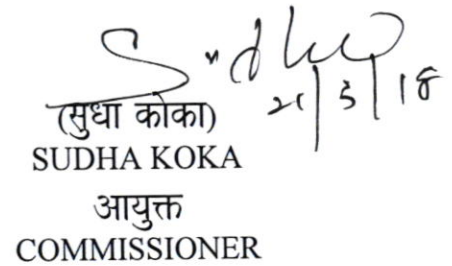 Sudha
21/5/18
(सुधा कोका)
SUDHA KOKA
आयुक्त
COMMISSIONER